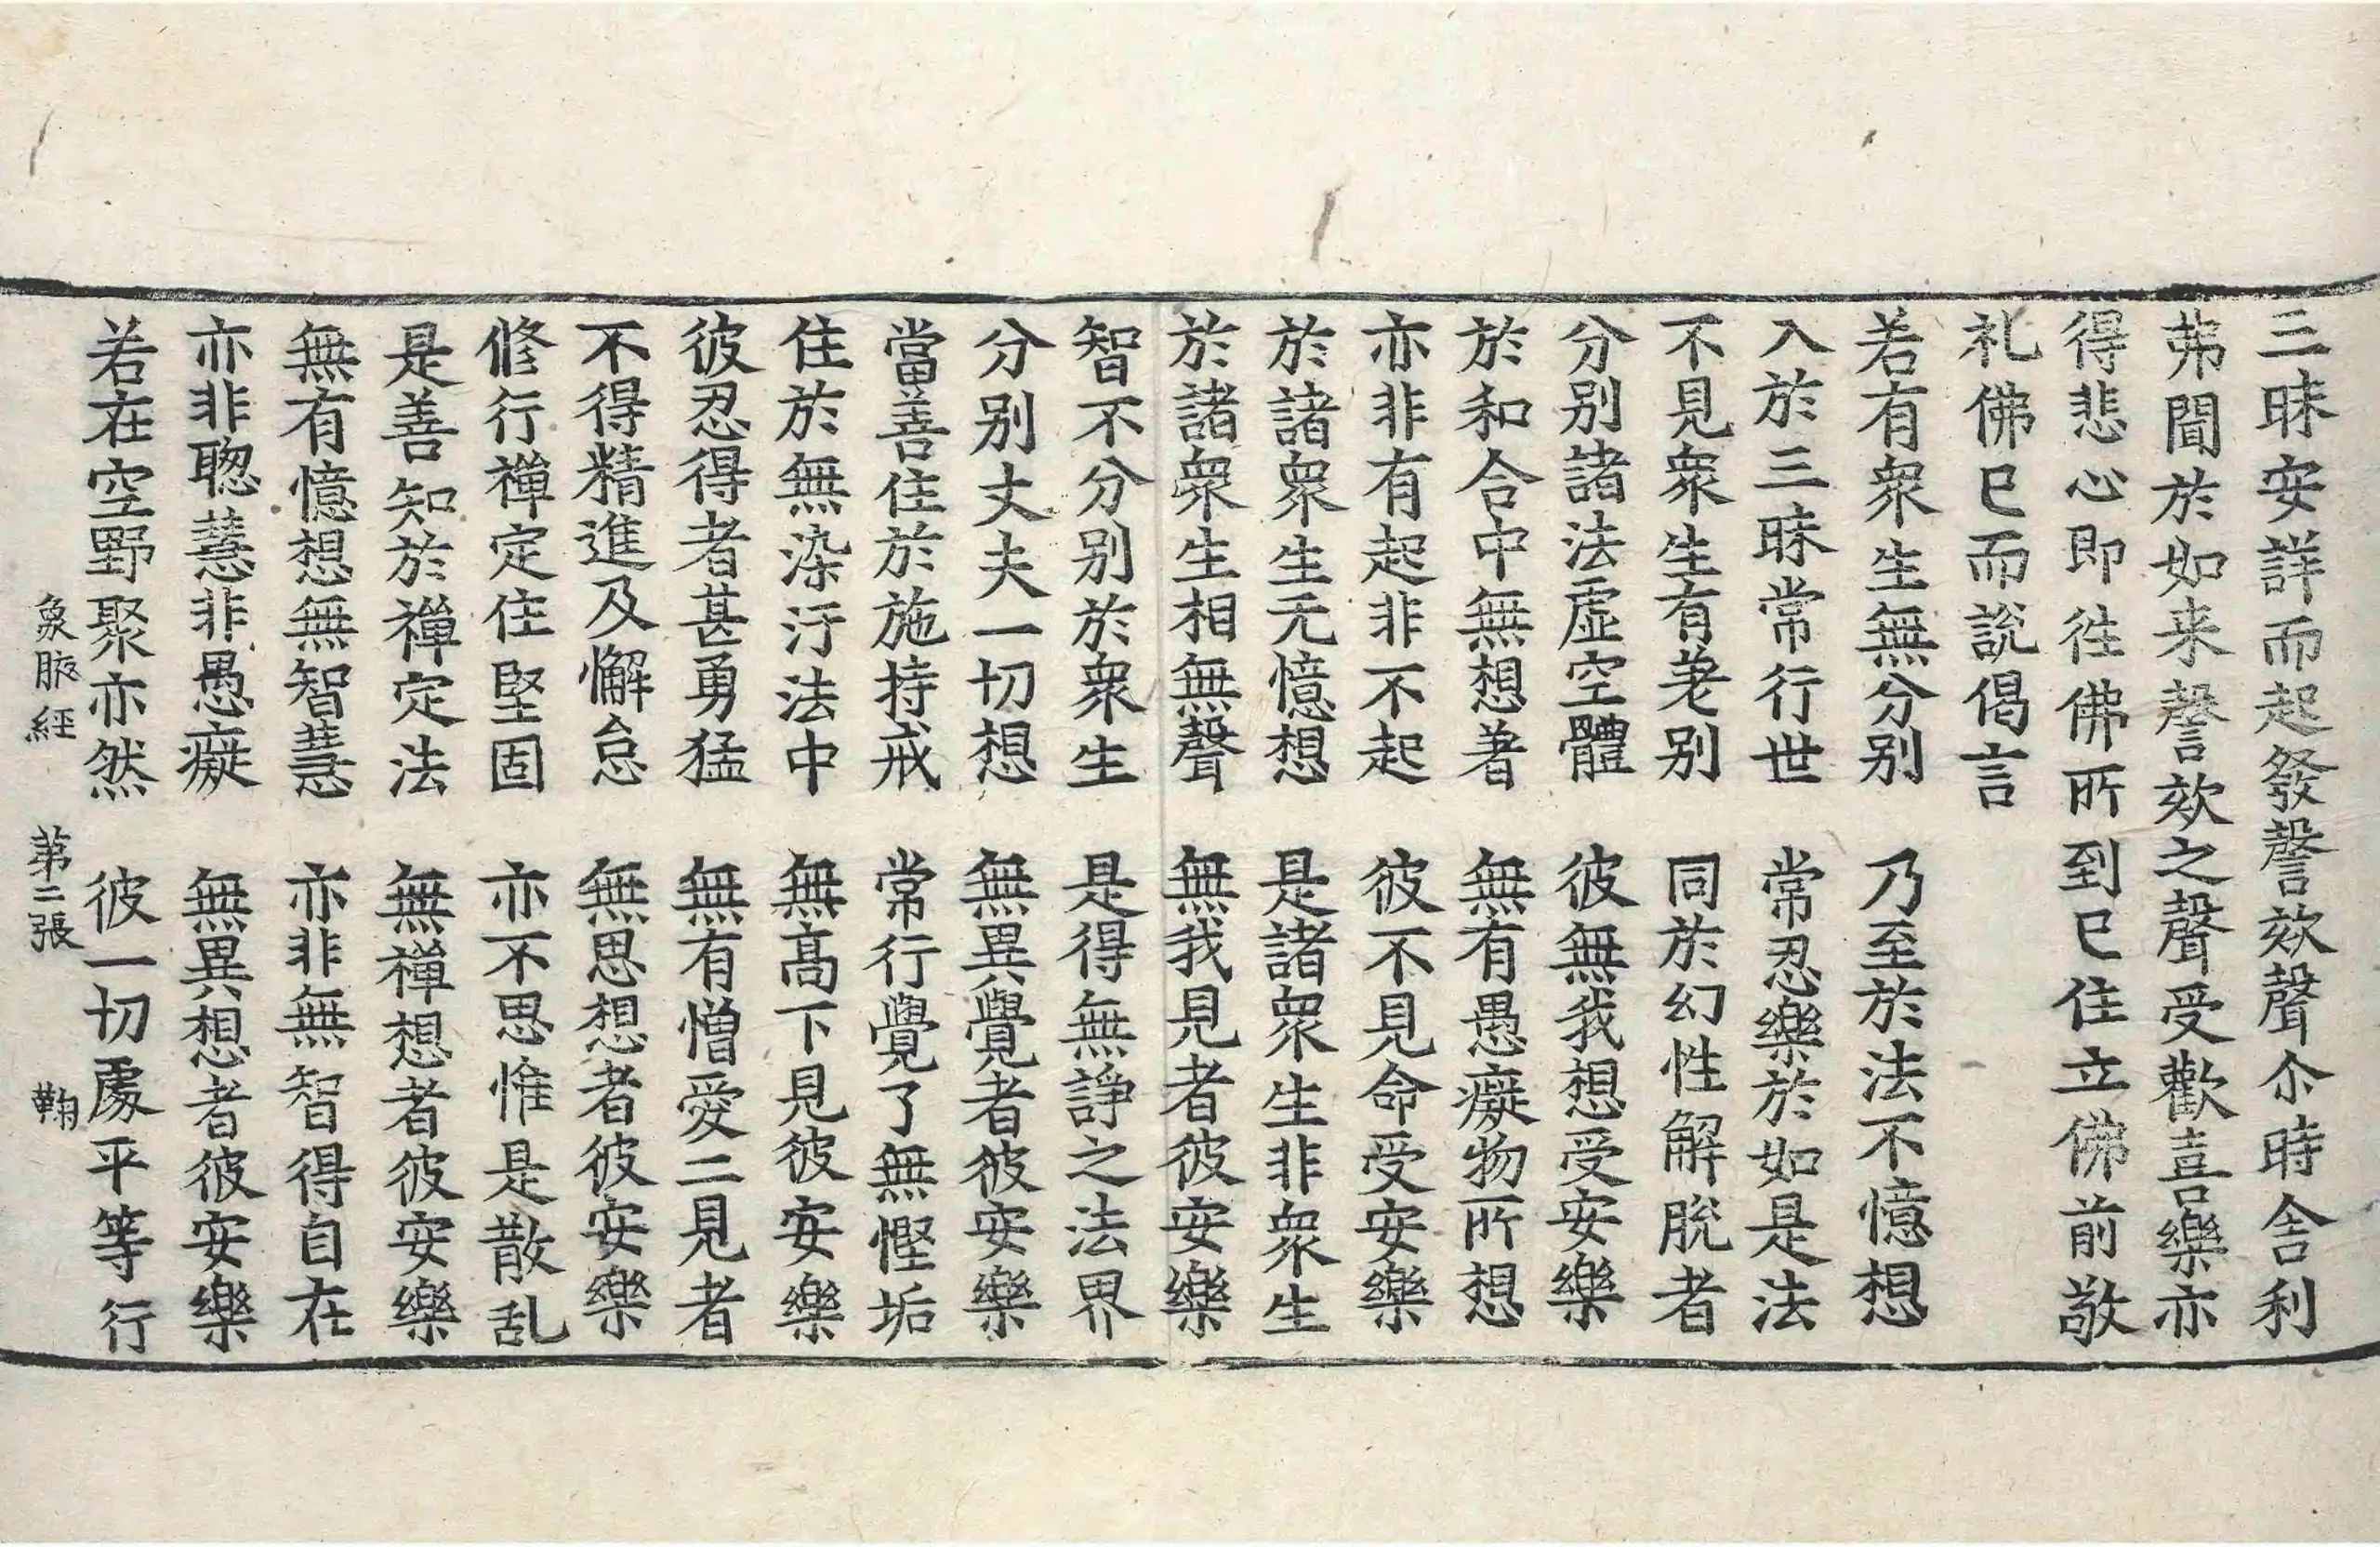 三昧安詳而起發謦欬聲尒時舍利
弗聞於如来謦欬之聲受歡喜樂亦
得悲心即徃佛所到已住立佛前敬
礼佛已而說偈言
若有衆生無分别　乃至於法不憶想
入於三昧常行世　常忍樂於如是法
不見衆生有差别　同於幻性解脫者
分别諸法虛空體　彼無我想受安樂
於和合中無想著　無有愚癡物所想
亦非有起非不起　彼不見命受安樂
於諸衆生无憶想　是諸衆生非衆生
於諸衆生相無聲　無我見者彼安樂
智不分别於衆生　是得無諍之法界
分别丈夫一切想　無異覺者彼安樂
當善住於施持戒　常行覺了無慳垢
住於無染汙法中　無髙下見彼安樂
彼忍得者甚勇猛　無有憎愛二見者
不得精進及懈怠　無思想者彼安樂
修行禪定住堅固　亦不思惟是散乱
是善知於禪定法　無禪想者彼安樂
無有憶想無智慧　亦非無智得自在
亦非聦慧非愚癡　無異想者彼安樂
若在空野聚亦然　彼一切處平等行
象腋經　第二張　鞠